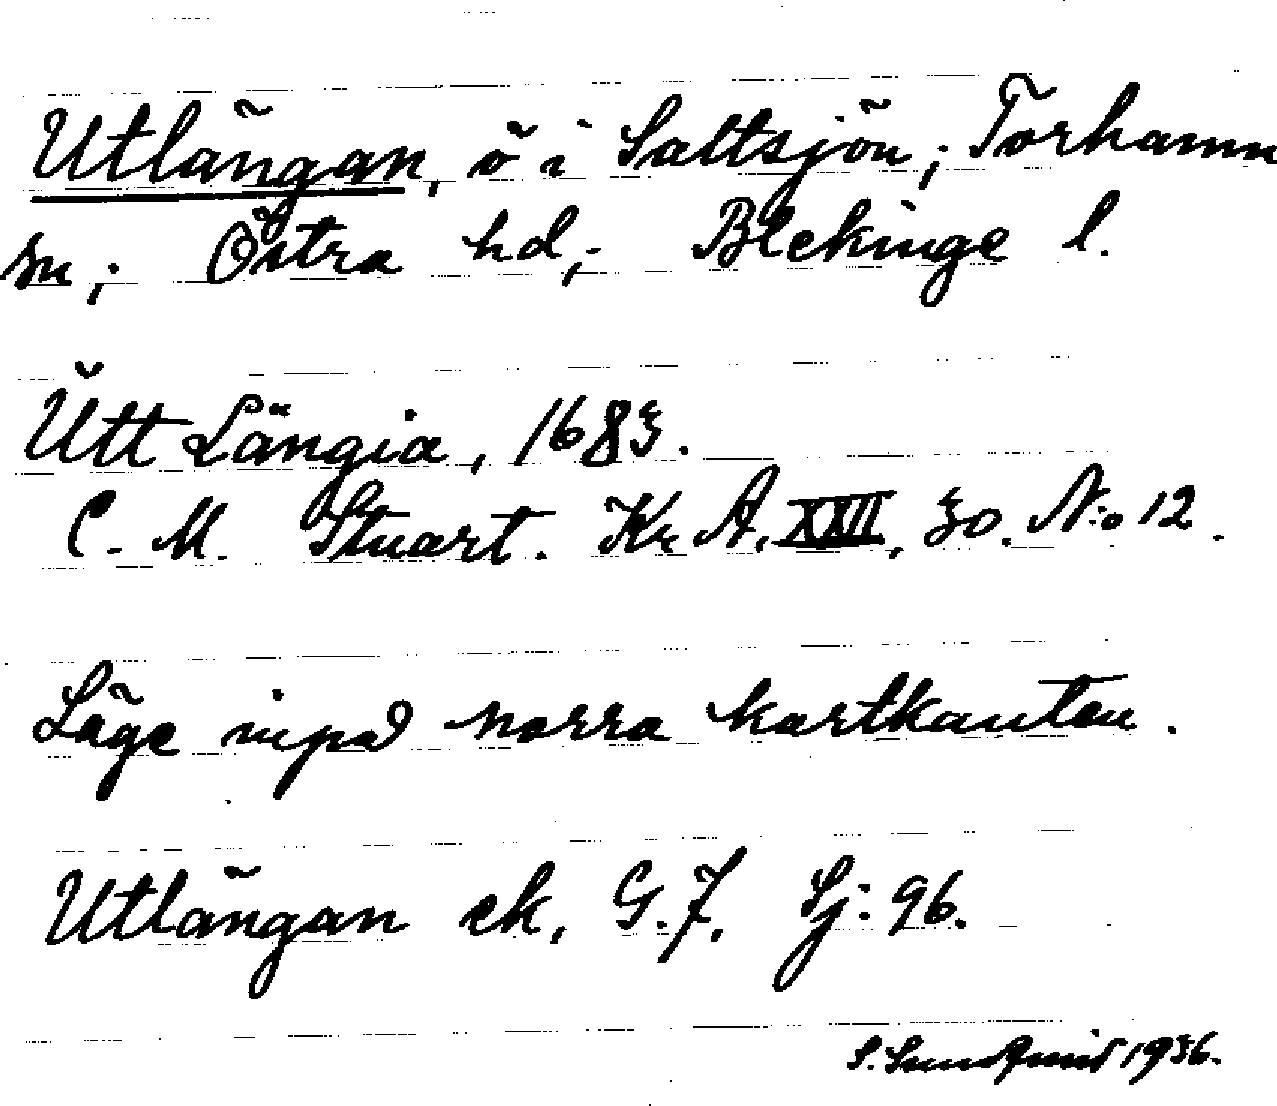 Utlängan, ö i Saltsjön; Torhamn
sn; Östra hd; Blekinge l.
Ŭtt Längia, 1683.
C. M. Stuart. Kr. A. XXII, 30. N:o 12.
Läge invpå norra kartkanten.
Utlängan ek. G.J. Sj: 96.
S. Sundqvist 1936.